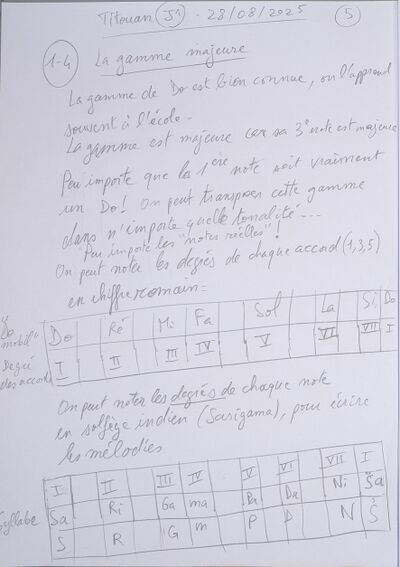 Titouan J1 - 28/08/2025 5
1-4 La gamme majeure
La gamme de Do est bien connue, on l'apprend
souvent à l'école.
La gamme est majeure car sa 3e note est majeure
Peu importe que la 1ère note soit vraiment
un Do! On peut transposer cette gamme
dans n'importe quelle tonalité...
"Peu importe les "notes réelles"!
On peut noter les degrés de chaque accord (1,3,5)
en chiffre romain:
"Do mobil" Do Ré Mi Fa Sol La Si Do
Degré des accord I II III IV V VI VII I
On peut noter les degrés de chaque note
en solfège indien (Sarigama), pour écrire
les mélodies
I II III IV V VI VII I
Syllabe Sa Ri Ga ma Pa Da Ni Ṡa
S R G m P D N Ṡ